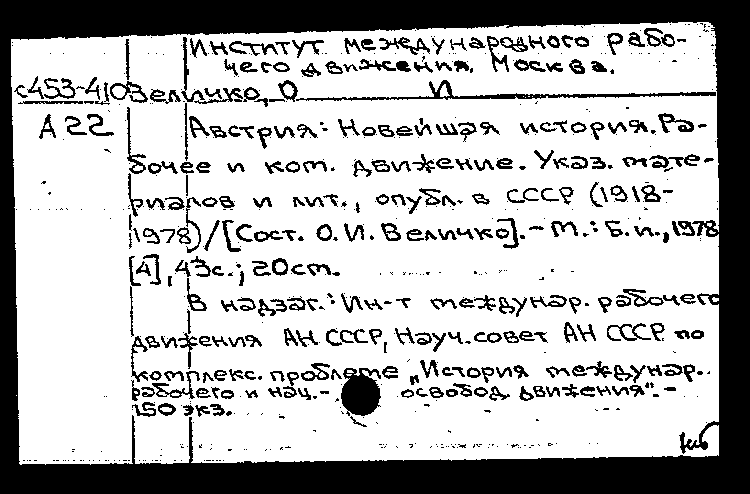 Институт международного рабо-
чего движения. Москва.
с453-410 Величко, О И
А22 Австрия: Новейшая история. Ра-
бочее и ком. движение. Указ. мате-
риалов и лит., опубл. в СССР (1918-
1978)/[Сост. О.И. Величко].- М.: Б.и., 1978
[4], 43с.; 20см.
В надзаг.: Ин-т междунар. рабочего
движения АН СССР, Науч. совет АН СССР по
комплекс. проблеме „История междунар.
рабочего и нац.- освобод. движения“.-
150 экз.